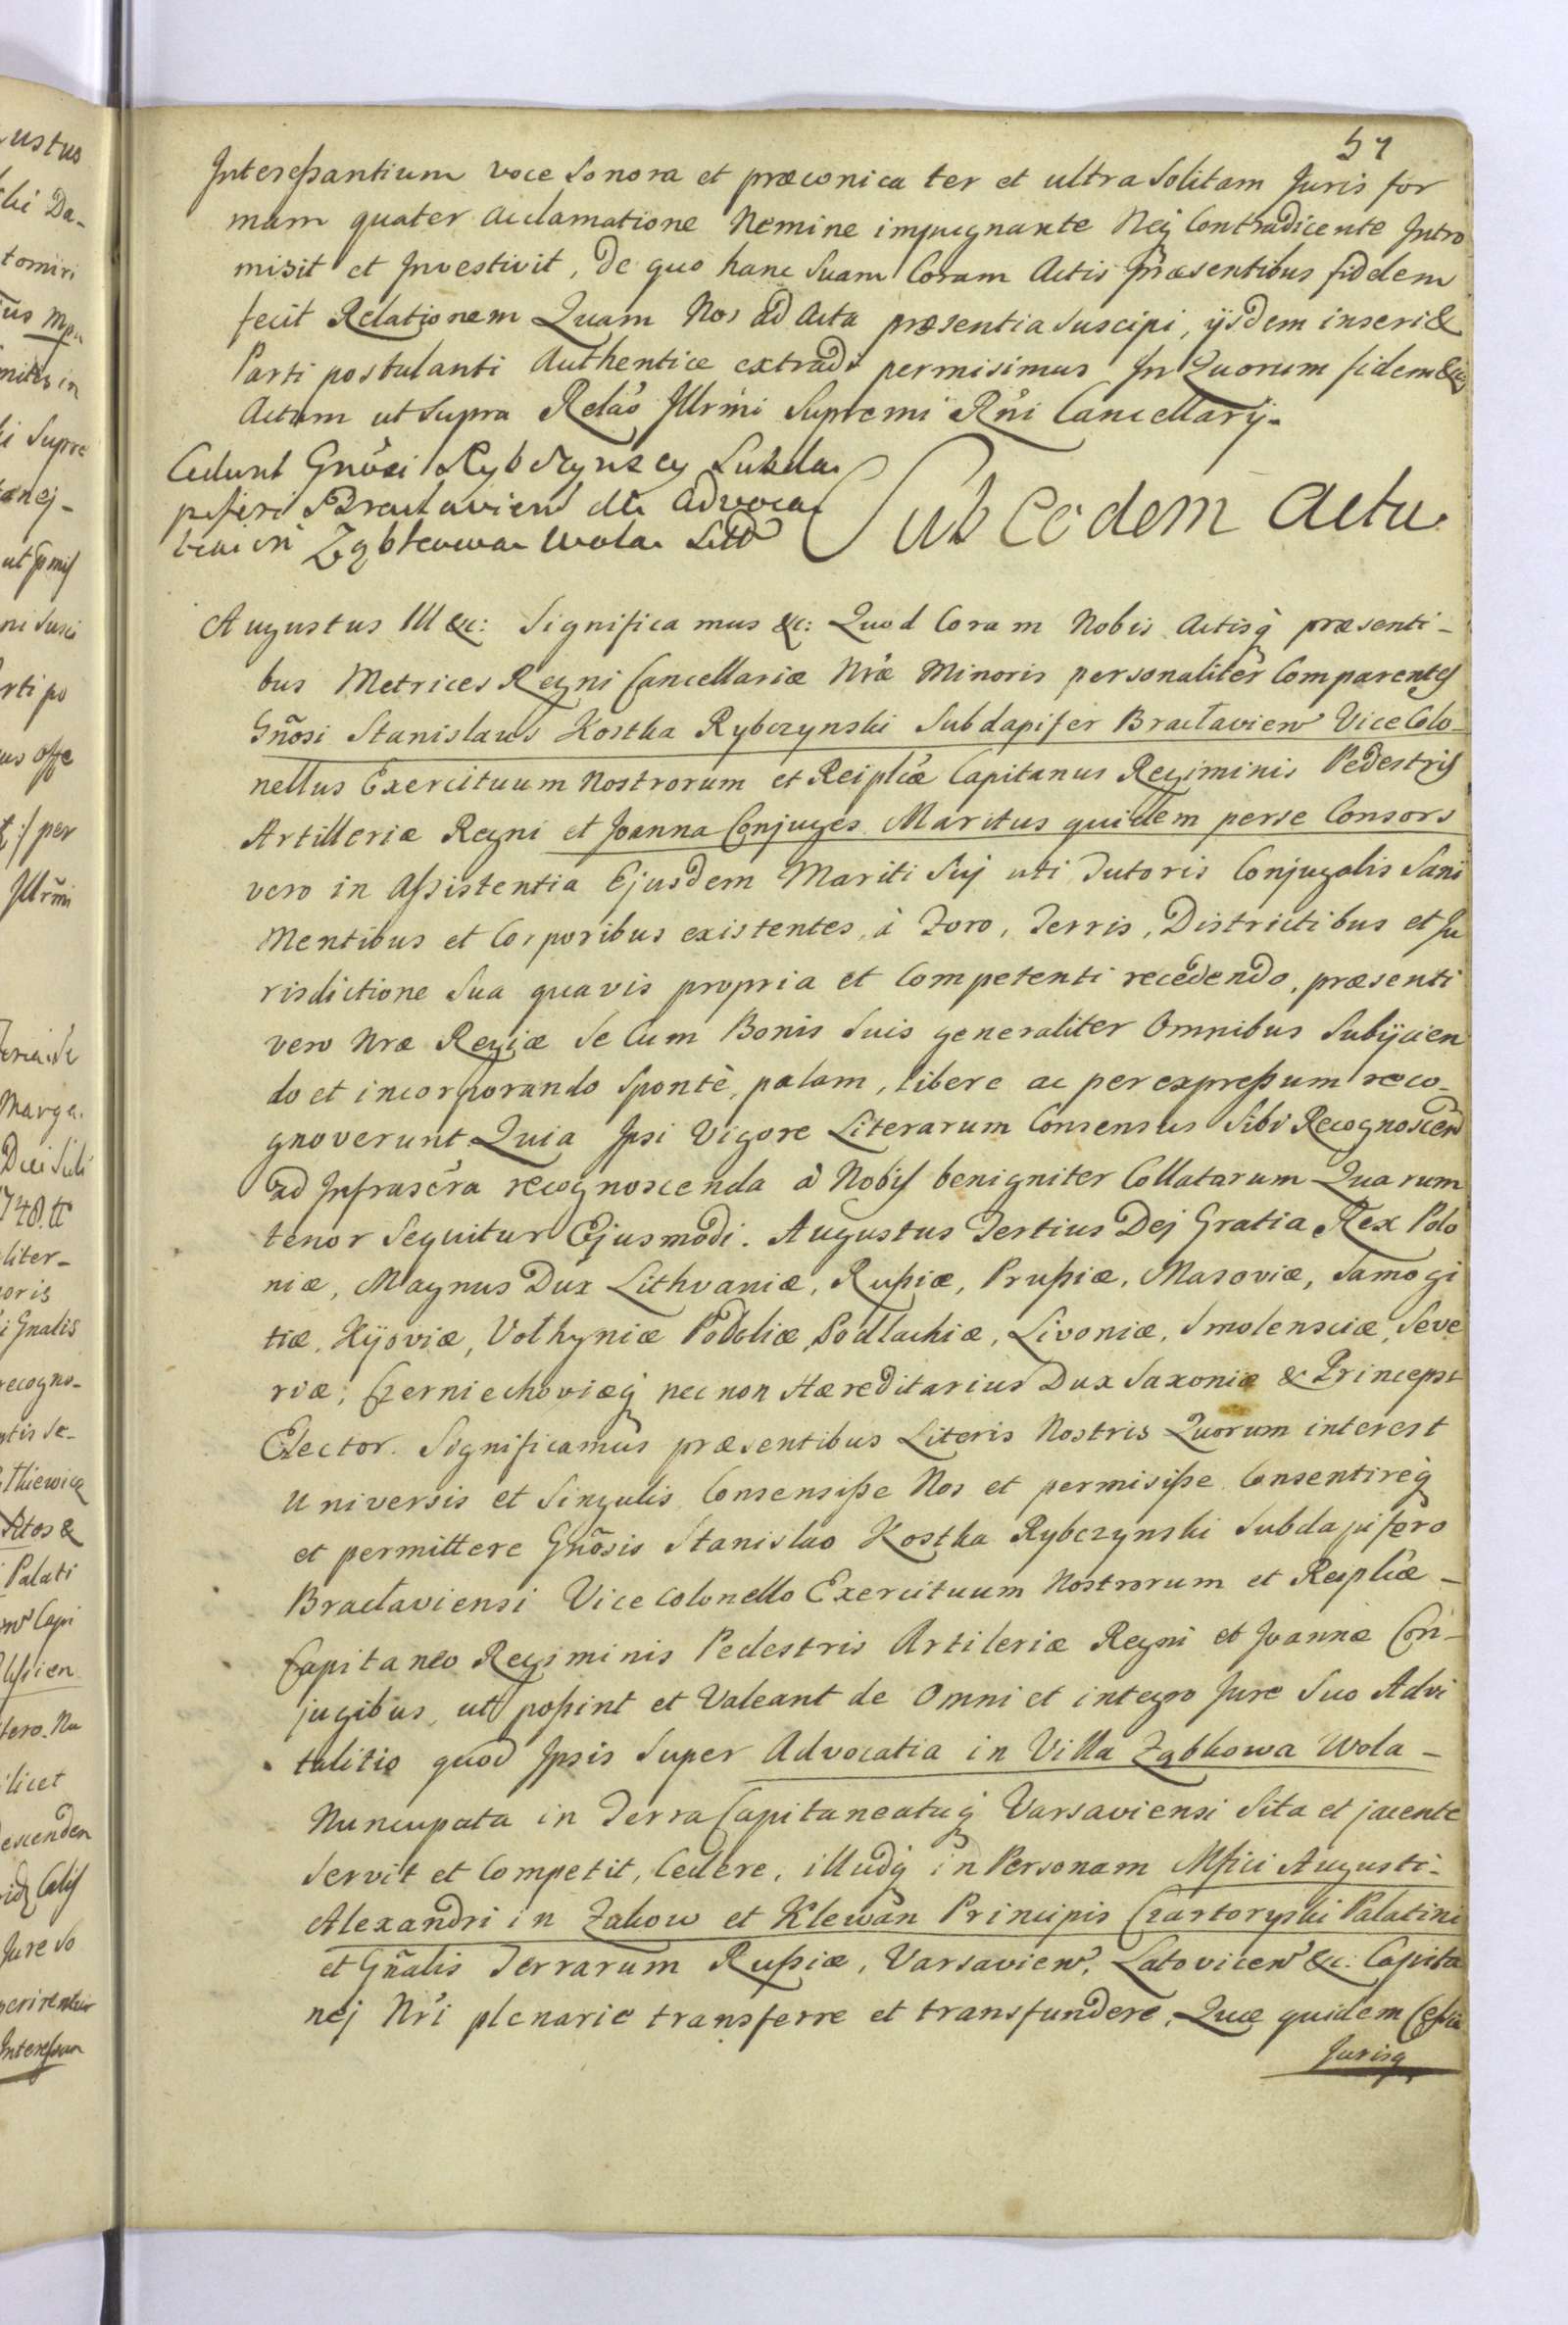 57
Interessantium voce sonora et præconica ter et ultra Solitam Juris for
mam quater acclamatione Nemine impugnante Neq̀ Contradicente Intro
misit et Investivit, de quo hanc Suam Coram Actis Præsentibus fidelem
fecit Relationem Quam Nos ad Acta præsentia suscipi, ijsdem inseri &
Parti postulanti Authentice extradi permisimus In Quorum fidem &c
Actum ut Supra Relao Illrmi Supremi Rni Cancellarij.
Cedunt Gnosi Rybczynscy Subda
piferi Braclavien dti Advoca
tiam in Ząbkowa Wola Litt
Sub eodem Actu
Augustus III &c: Significamus &c: Quod Coram Nobis Actisq̀ præsenti-
bus Metrices Regni Cancellariæ Nræ Minoris personaliter Comparentes
Gnosi Stanislaus Kostka Rybczynski Subdapifer Braclavien Vice Colo-
nellus Exercituum Nostrorum et Reiplcæ Capitanus Regiminis Pedestris
Artilleriæ Regni et Joanna Conjuges Maritus quidem perse Consors
vero in Assistentia Ejusdem Mariti Sui uti Tutoris Conjugalis Sani
Mentibus et Corporibus existentes, à Foro, Terris, Districtibus et Ju
risdictione Sua quavis propria et Competenti recedendo, præsenti
vero Nræ Regiæ Se Cum Bonis Suis generaliter Omnibus Subijcien
do et incorporando Spontè, palam, libere ac per expressum reco-
gnoverunt Quia Ipsi Vigore Literarum Consensus Sibi Recognoscen
ad Infrascra recognoscenda à Nobis benigniter Collatarum Quarum
tenor Sequitur Ejusmodi. Augustus Tertius Dej Gratia Rex Polo
niæ, Magnus Dux Lithvaniæ, Russiæ, Prussiæ, Masoviæ, Samogi
tiæ, Kijoviæ, Volhyniæ Podoliæ, Podlachiæ, Livoniæ, Smolensciæ, Seve
riæ, Czerniechoviæq̀ nec non Hæreditarius Dux Saxoniæ & Princeps
Elector. Significamus præsentibus Literis Nostris Quorum interest
Universis et Singulis Consensisse Nos et permisisse Consentireq̀
et permittere Gnosis Stanislao Kostka Rybczynski Subdapifero
Braclaviensi Vice Colonello Exercituum Nostrorum et Reiplcæ -
Capitaneo Regiminis Pedestris Artileriæ Regni et Joannæ Con-
jugibus, ut possint et Valeant de Omni et integro Jure Suo Advi
talitio quod Ipsis Super Advocatia in Villa Ząbkowa Wola -
Nuncupata in Terra Capitaneatuq̀ Varsaviensi Sita et jacente
Servit et Competit, Cedere, illudq̀ in Personam Mfici Augusti-
Alexandri in Zukow et Klewan Principis Czartoryski Palatini
et Gñalis Terrarum Russiæ, Varsavien, Latovicen &c: Capita
nej Nri plenarie transferre et transfundere, Quæ quidem Cessio
Jurisq